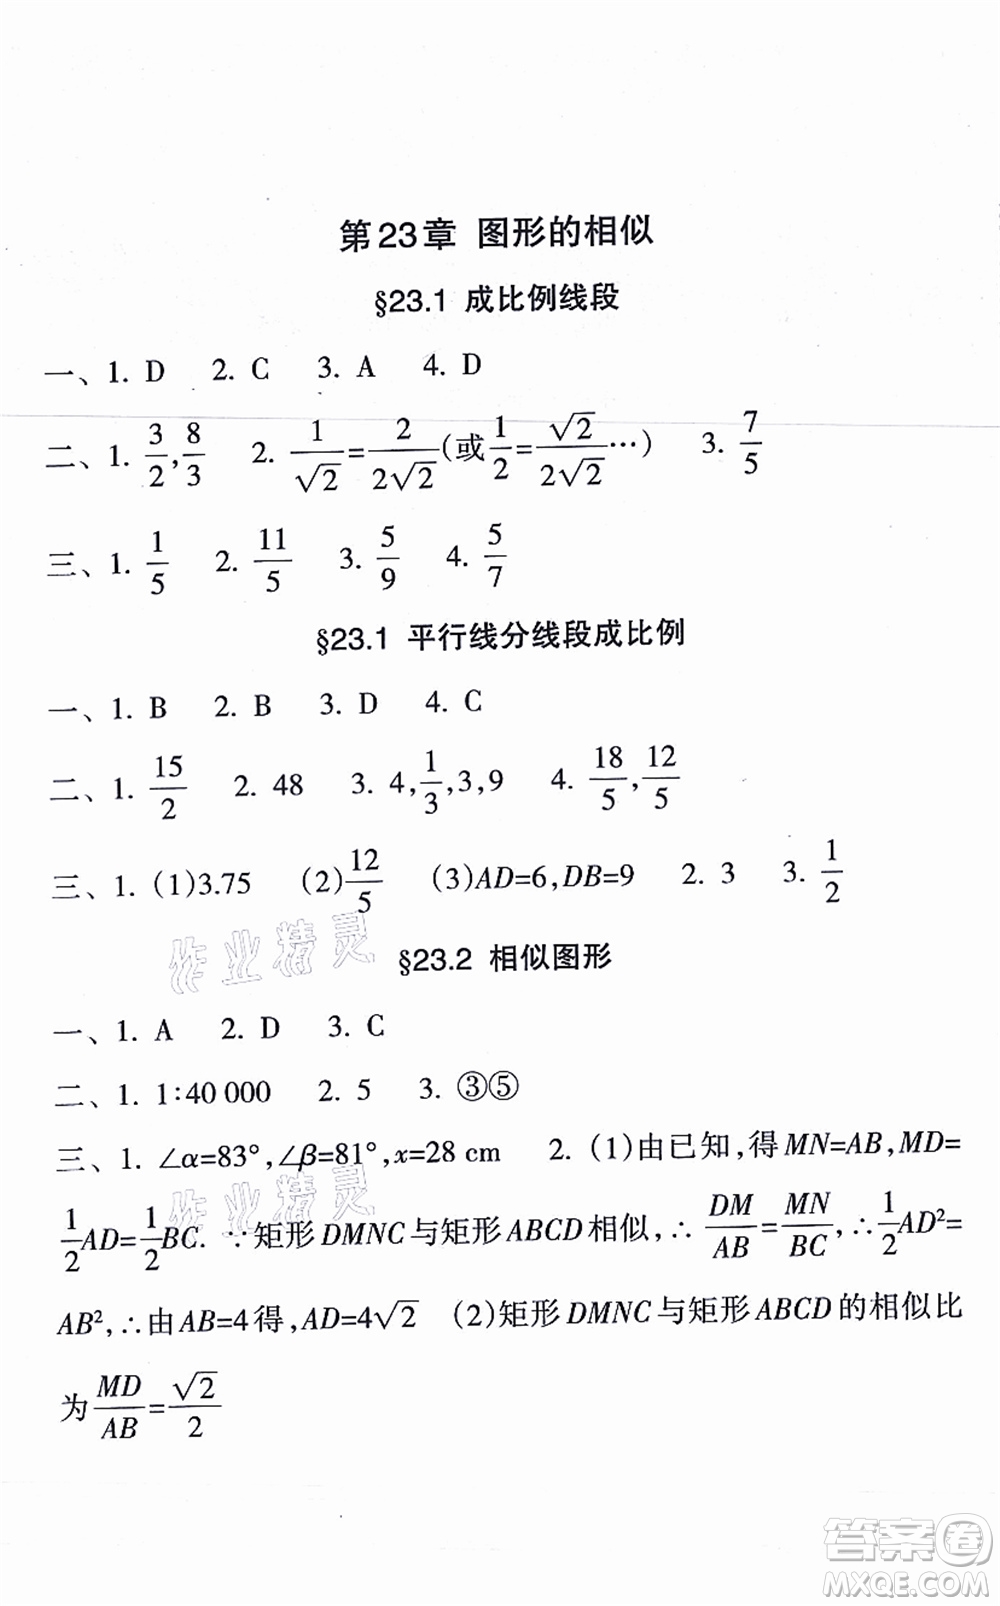 第23章 图形的相似
§23.1 成比例线段
一、1. D 2. C 3. A 4. D
二、1. 3/2, 8/3 2. 1/√2=2/(2√2)(或1/2=√2/(2√2)…) 3. 7/5
三、1. 1/5 2. 11/5 3. 5/9 4. 5/7
§23.1 平行线分线段成比例
一、1. B 2. B 3. D 4. C
二、1. 15/2 2. 48 3. 4, 1/3, 3, 9 4. 18/5, 12/5
三、1. (1)3.75 (2)12/5 (3)AD=6, DB=9 2. 3 3. 1/2
作业精灵
§23.2 相似图形
一、1. A 2. D 3. C
二、1. 1∶40 000 2. 5 3. ③⑤
三、1. ∠α=83°, ∠β=81°, x=28 cm 2. (1)由已知,得MN=AB, MD=
作业精灵
1/2AD=1/2BC. ∵矩形DMNC与矩形ABCD相似,∴DM/AB=MN/BC,∴1/2AD²=
AB²,∴由AB=4得,AD=4√2 (2)矩形DMNC与矩形ABCD的相似比
为MD/AB=√2/2
答案卷
MXQE.COM